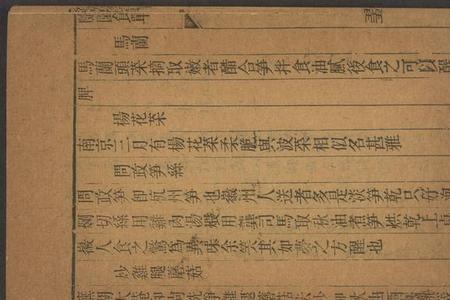 馬蘭
馬蘭頭菜摘取嫩者醋合筍拌食油膩後食之可以醒
脾
楊花菜
南京三月有楊花菜柔脆與波菜相似名甚雅
問政筍絲
問政筍即杭州筍也徽州人送者多是淡筍乾只好泡
爛切絲用雞肉湯煨用龔司馬取秋油煮筍烘乾上桌
徽人食之驚為異味余笑其如夢之方醒也
炒雞腿蘑菇